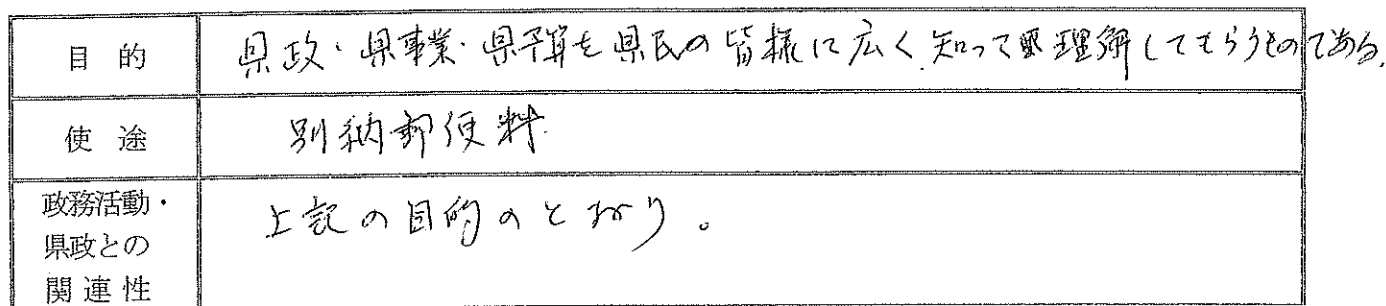 目的 県政・県事業・県予算を県民の皆様に広く知って理解してもらうものである。
使途 別納郵便料
政務活動・
県政との
関連性
上記の目的のとおり。